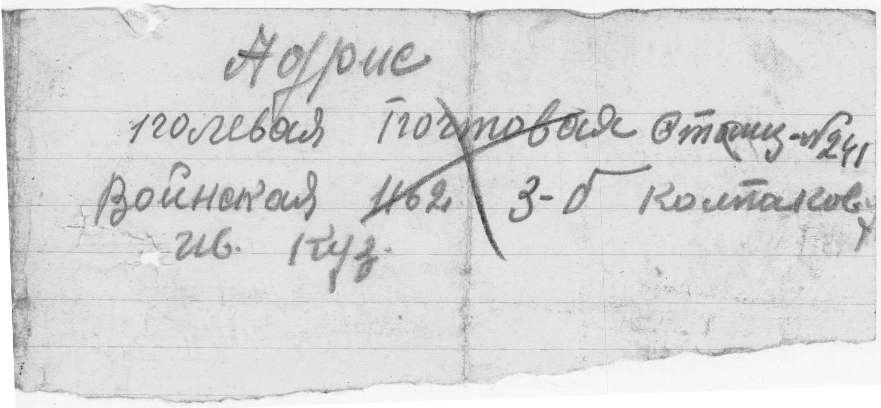 Адрис
полевая Почтовая Станц-№241
Войнская 1162 3-б Колпакову
Ив. Куз.